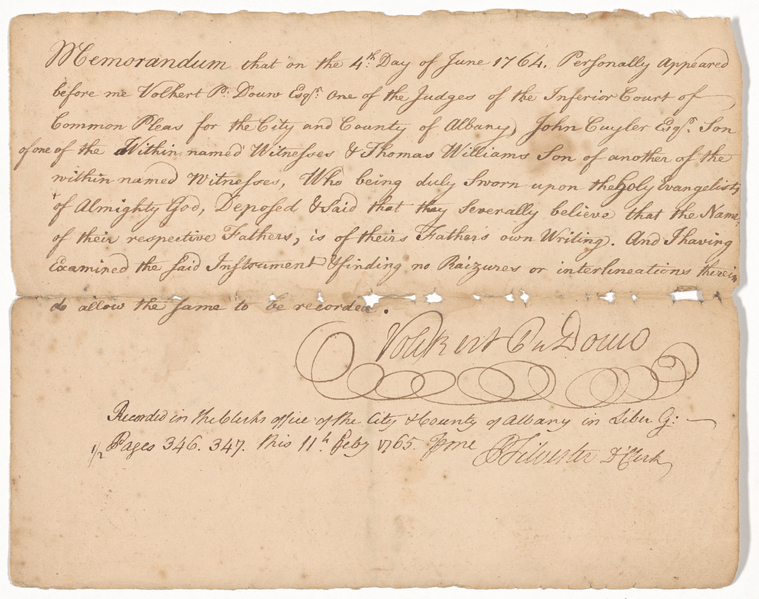 Memorandum that on the 4th. Day of June 1764. Personally Appeared
before me Volkert P. Douw Esqr. One of the Judges of the Inferior Court of
Common Pleas for the City and County of Albany, John Cuyler Esqr. Son
of one of the Within named Witnesses & Thomas Williams Son of another of the
within named Witnesses, Who being duly Sworn upon the Holy Evangelists
of Almighty God, Deposed & Said that they Severally believe that the Name
of their respective Fathers, is of theirs Father's own Writing. And I having
Examined the said Instrument & finding no Raizures or interlineations therein
do allow the Same to be recorded.
Volkert P Douw
Recorded in the Clerks office of the City & County of Albany in Liber G:
Pages 346. 347. this 11th. Feby 1765. Pr me
P Silvester D Clerk